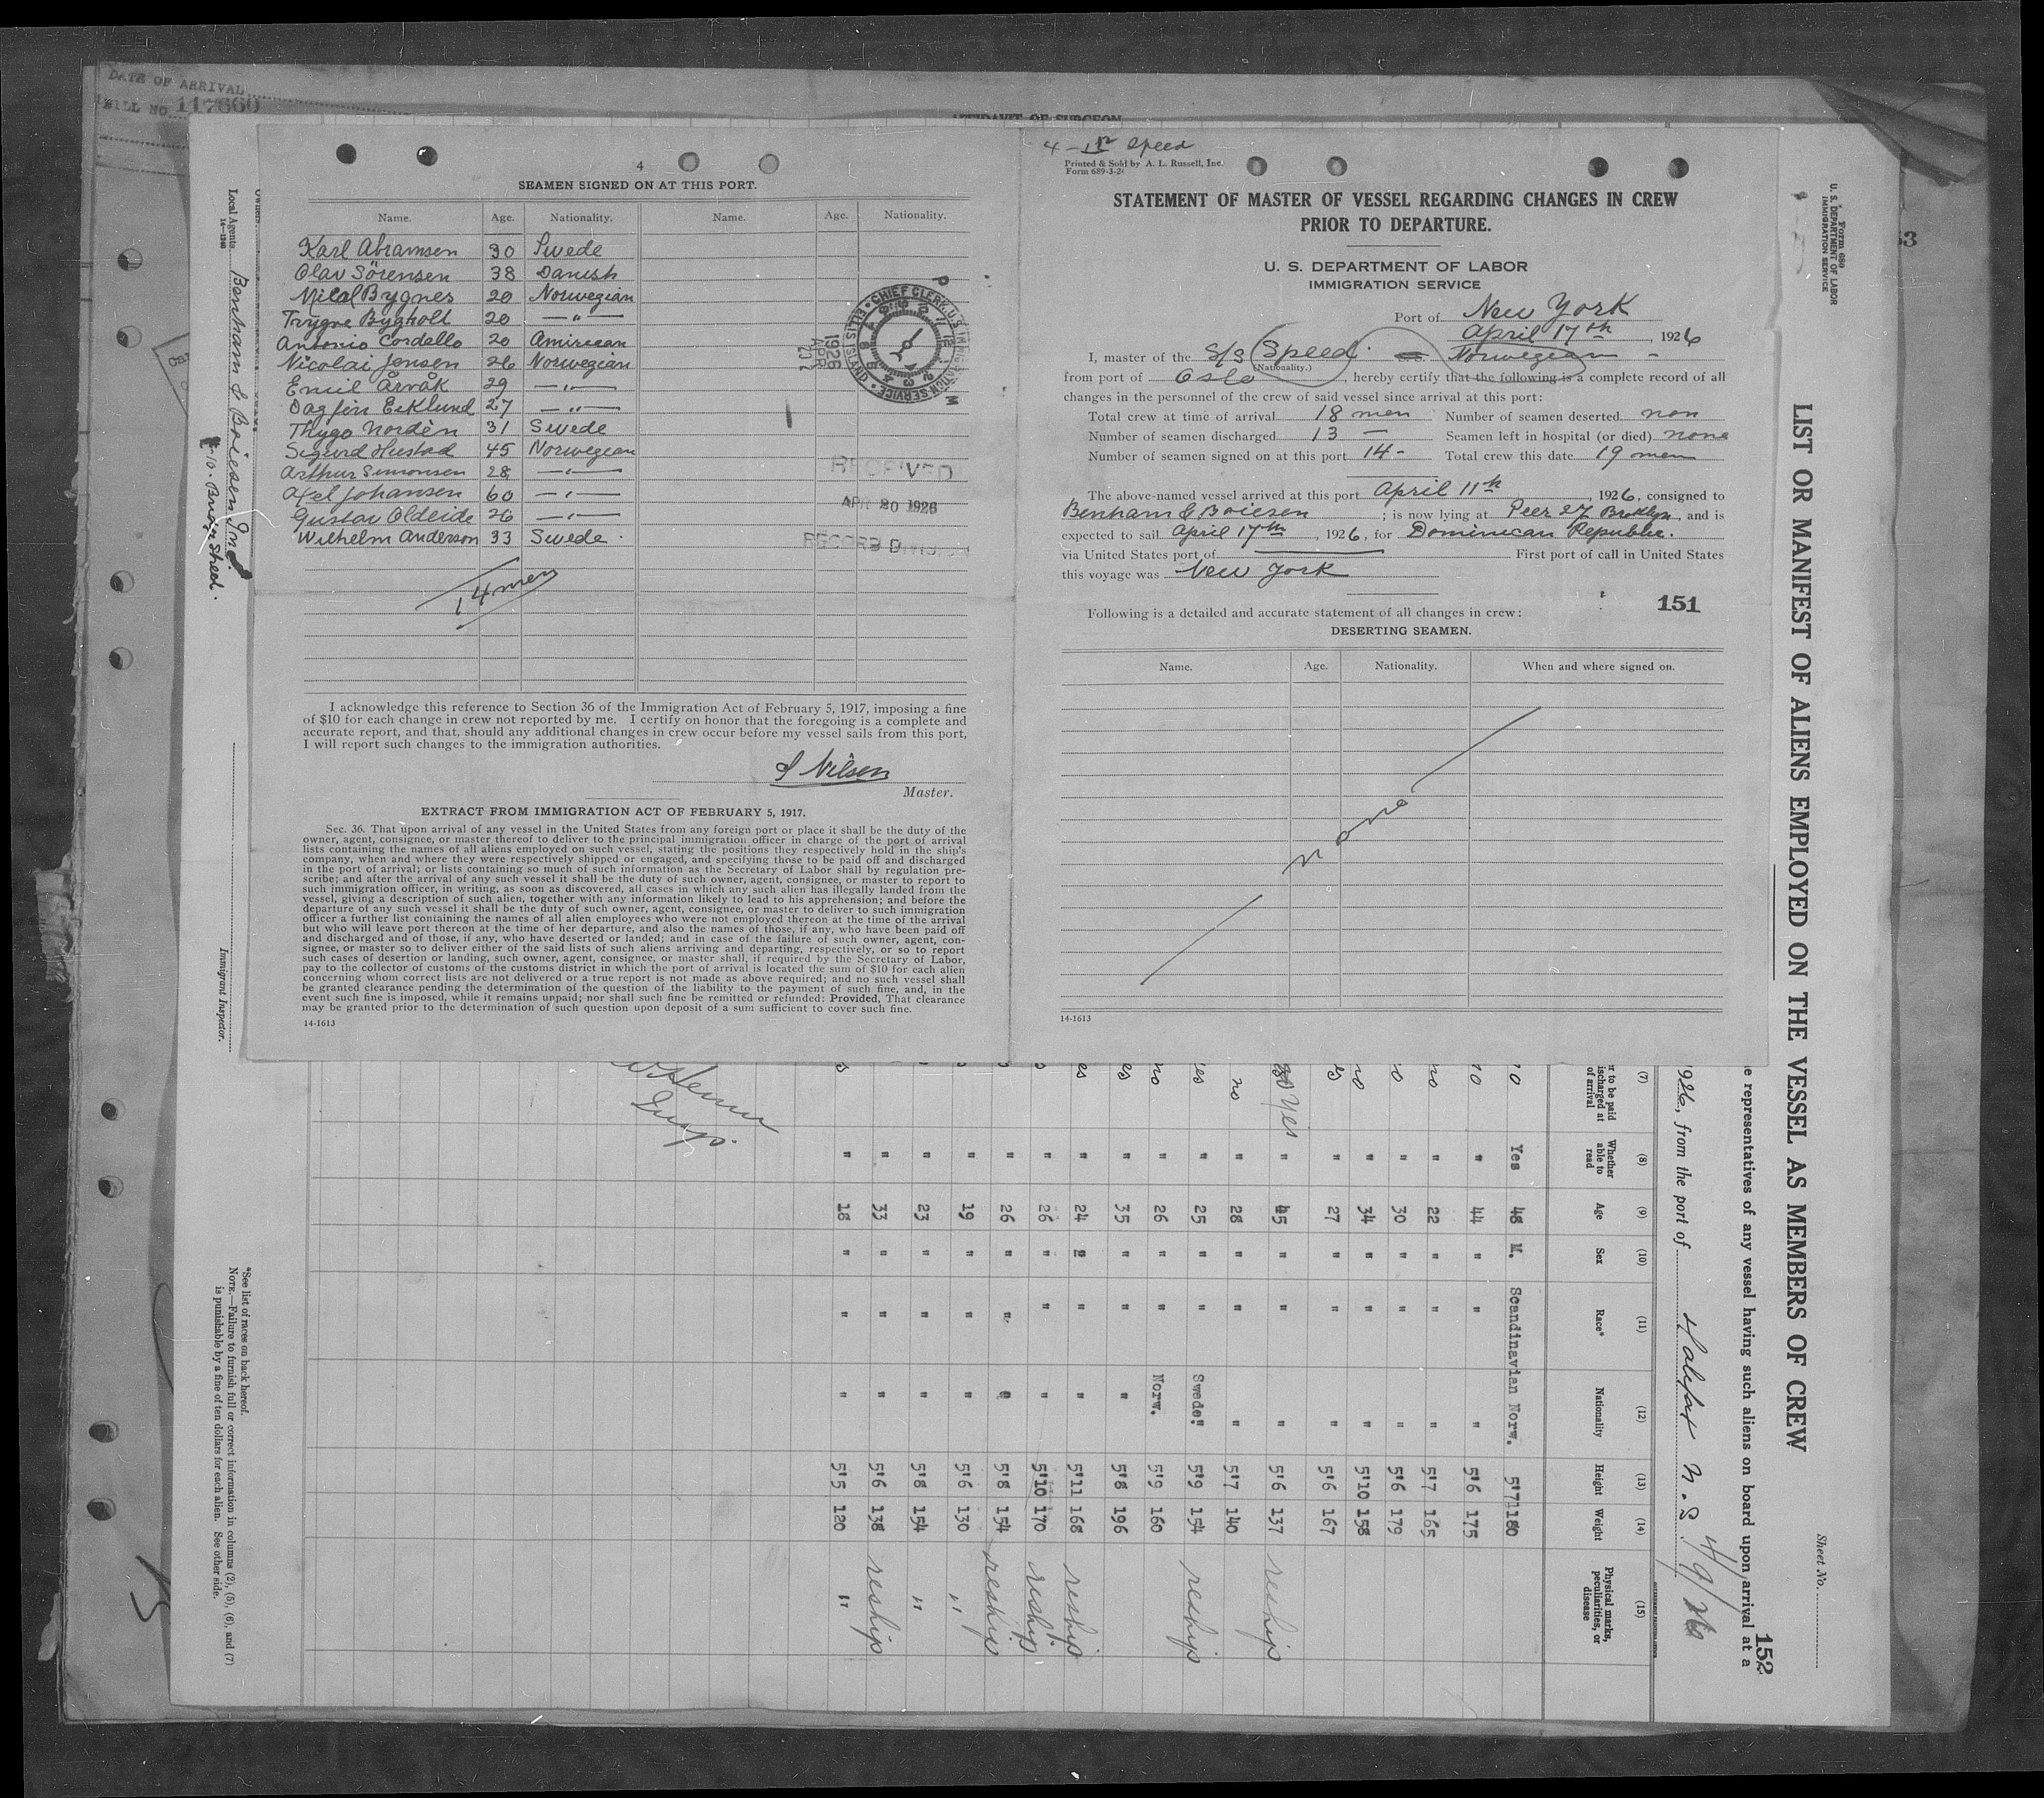 DATE OF ARRIVAL
BILL NO. 117660
AFFIDAVIT OF SURGEON
53
4
SEAMEN SIGNED ON AT THIS PORT.
Name. Age. Nationality. Name. Age. Nationality.
Karl Abramsen 30 Swede
Olav Sörensen 38 Danish
Bygnes 20 Norwegian
Trygve Bygholt 20 — " —
Antonio Cordallo 20 Amirican
Nicolai Jensen 26 Norwegian
Emil Årvåk 29 — " —
Dagfin Ecklund 27 — " —
Thygo Nordèn 31 Swede
Sigurd Hustad 45 Norwegian
Arthur Simonsen 28 — " —
Axel Johansen 60 — " —
Gustav Oldeide 26 — " —
Wilhelm Anderson 33 Swede
14 men
CHIEF CLERK, U.S. IMMIGRATION SERVICE • ELLIS ISLAND •
1926 APR
RECEIVED
APR 20 1926
RECORD DIVISION
I acknowledge this reference to Section 36 of the Immigration Act of February 5, 1917, imposing a fine
of $10 for each change in crew not reported by me. I certify on honor that the foregoing is a complete and
accurate report, and that, should any additional changes in crew occur before my vessel sails from this port,
I will report such changes to the immigration authorities.
S Nilsen
Master.
EXTRACT FROM IMMIGRATION ACT OF FEBRUARY 5, 1917.
Sec. 36. That upon arrival of any vessel in the United States from any foreign port or place it shall be the duty of the
owner, agent, consignee, or master thereof to deliver to the principal immigration officer in charge of the port of arrival
lists containing the names of all aliens employed on such vessel, stating the positions they respectively hold in the ship's
company, when and where they were respectively shipped or engaged, and specifying those to be paid off and discharged
in the port of arrival; or lists containing so much of such information as the Secretary of Labor shall by regulation pre-
scribe; and after the arrival of any such vessel it shall be the duty of such owner, agent, consignee, or master to report to
such immigration officer, in writing, as soon as discovered, all cases in which any such alien has illegally landed from the
vessel, giving a description of such alien, together with any information likely to lead to his apprehension; and before the
departure of any such vessel it shall be the duty of such owner, agent, consignee, or master to deliver to such immigration
officer a further list containing the names of all alien employees who were not employed thereon at the time of the arrival
but who will leave port thereon at the time of her departure, and also the names of those, if any, who have been paid off
and discharged and of those, if any, who have deserted or landed; and in case of the failure of such owner, agent, con-
signee, or master so to deliver either of the said lists of such aliens arriving and departing, respectively, or so to report
such cases of desertion or landing, such owner, agent, consignee, or master shall, if required by the Secretary of Labor,
pay to the collector of customs of the customs district in which the port of arrival is located the sum of $10 for each alien
concerning whom correct lists are not delivered or a true report is not made as above required; and no such vessel shall
be granted clearance pending the determination of the question of the liability to the payment of such fine, and, in the
event such fine is imposed, while it remains unpaid; nor shall such fine be remitted or refunded: Provided, That clearance
may be granted prior to the determination of such question upon deposit of a sum sufficient to cover such fine.
14-1613
4 — Speed
Printed & Sold by A. L. Russell, Inc.
Form 689-3-2
STATEMENT OF MASTER OF VESSEL REGARDING CHANGES IN CREW
PRIOR TO DEPARTURE.
U. S. DEPARTMENT OF LABOR
IMMIGRATION SERVICE
Port of New York
April 17th, 1926
I, master of the S/S Speed Norwegian
(Nationality.)
from port of Oslo, hereby certify that the following is a complete record of all
changes in the personnel of the crew of said vessel since arrival at this port:
Total crew at time of arrival 18 men Number of seamen deserted non
Number of seamen discharged 13 — Seamen left in hospital (or died) none
Number of seamen signed on at this port 14 - Total crew this date 19 men
The above-named vessel arrived at this port April 11th, 1926, consigned to
Benham & Boiesen; is now lying at Peer 27 Broklyn, and is
expected to sail April 17th, 1926, for Dominican Republic.
via United States port of First port of call in United States
this voyage was New York
151
Following is a detailed and accurate statement of all changes in crew:
DESERTING SEAMEN.
Name. Age. Nationality. When and where signed on.
none
14-1613
Form 680
U. S. DEPARTMENT OF LABOR
IMMIGRATION SERVICE
Sheet No.
LIST OR MANIFEST OF ALIENS EMPLOYED ON THE VESSEL AS MEMBERS OF CREW
152
representatives of any vessel having such aliens on board upon arrival at a
926, from the port of Halifax N.S. 4/9/26
(7) (8) (9) (10) (11) (12) (13) (14) (15)
to be paid discharged at of arrival Whether able to read Age Sex Race* Nationality Height Weight Physical marks, peculiarities, or disease
Yes 48 M. Scandinavian Norw. 5'7 180
" 44 " " " 5'6 175
no " 22 " " " 5'7 165
" 30 " " " 5'6 179
" 34 " " " 5'10 158
" 27 " " " 5'6 167
Yes " 45 " " " 5'6 137 reship
no " 28 " " " 5'7 140
" 25 " " Swede" 5'9 154 reship
no " 26 " " Norw. 5'9 160
" 35 " " " 5'8 196
" 24 " " " 5'11 168 reship
" 26 " " " 5'10 170 reship
" 26 " " " 5'8 154 reship
" 19 " " " 5'6 130 "
" 23 " " " 5'8 154 "
" 33 " " " 5'6 138 reship
" 18 " " " 5'5 120 "
Insp.
Owners
Local Agents Benham & Boiesen Inc
14—1240
8-10. Bridge Street.
Immigrant Inspector.
*See list of races on back hereof.
NOTE.—Failure to furnish full or correct information in columns (2), (5), (6), and (7)
is punishable by a fine of ten dollars for each alien. See other side.